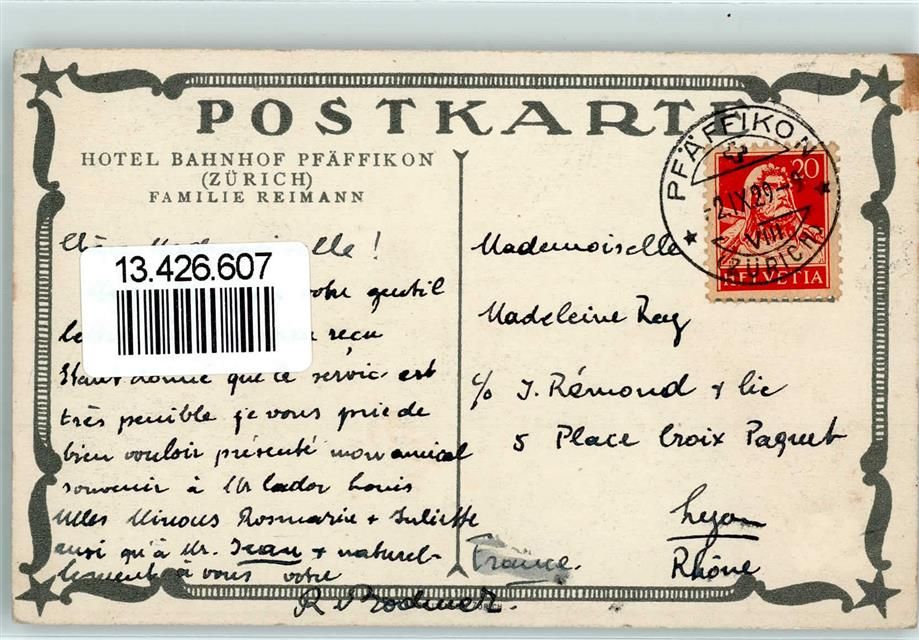 POSTKARTE
HOTEL BAHNHOF PFÄFFIKON
(ZÜRICH)
FAMILIE REIMANN
13.426.607
votre gentil
reçu
Etant donné que ce servic est
très penible je vous prie de
bien vouloir présenté mon amical
souvenir à Mr Cador Louis
Mlles Minous Rosmarie + Juliette
ausi qu'à Mr. Jean + naturel-
lement à vous votre
R. Bodmer.
PFÄFFIKON
-2.IX.29.-5
VIII
(ZÜRICH)
20
HELVETIA
Mademoiselle
Madeleine Rey
c/o J. Rémond + Cie
5 Place Croix Paquet
Lyon
France.
Rhône